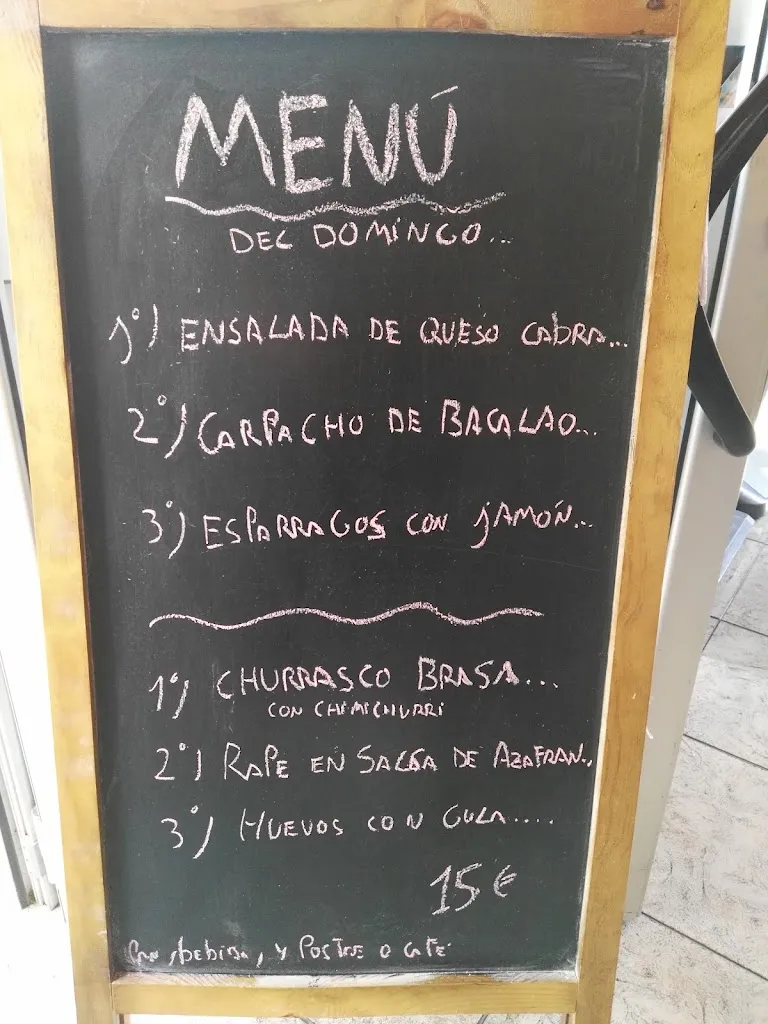 MENÚ
DEL DOMINGO...
1º) ENSALADA DE QUESO CABRA...
2º) CARPACHO DE BACALAO...
3º) ESPARRAGOS CON JAMÓN...
1º) CHURRASCO BRASA...
CON CHIMICHURRI
2º) RAPE EN SALSA DE AZAFRAN..
3º) HUEVOS CON GULA....
15€
Pan, bebida, y Postre o café